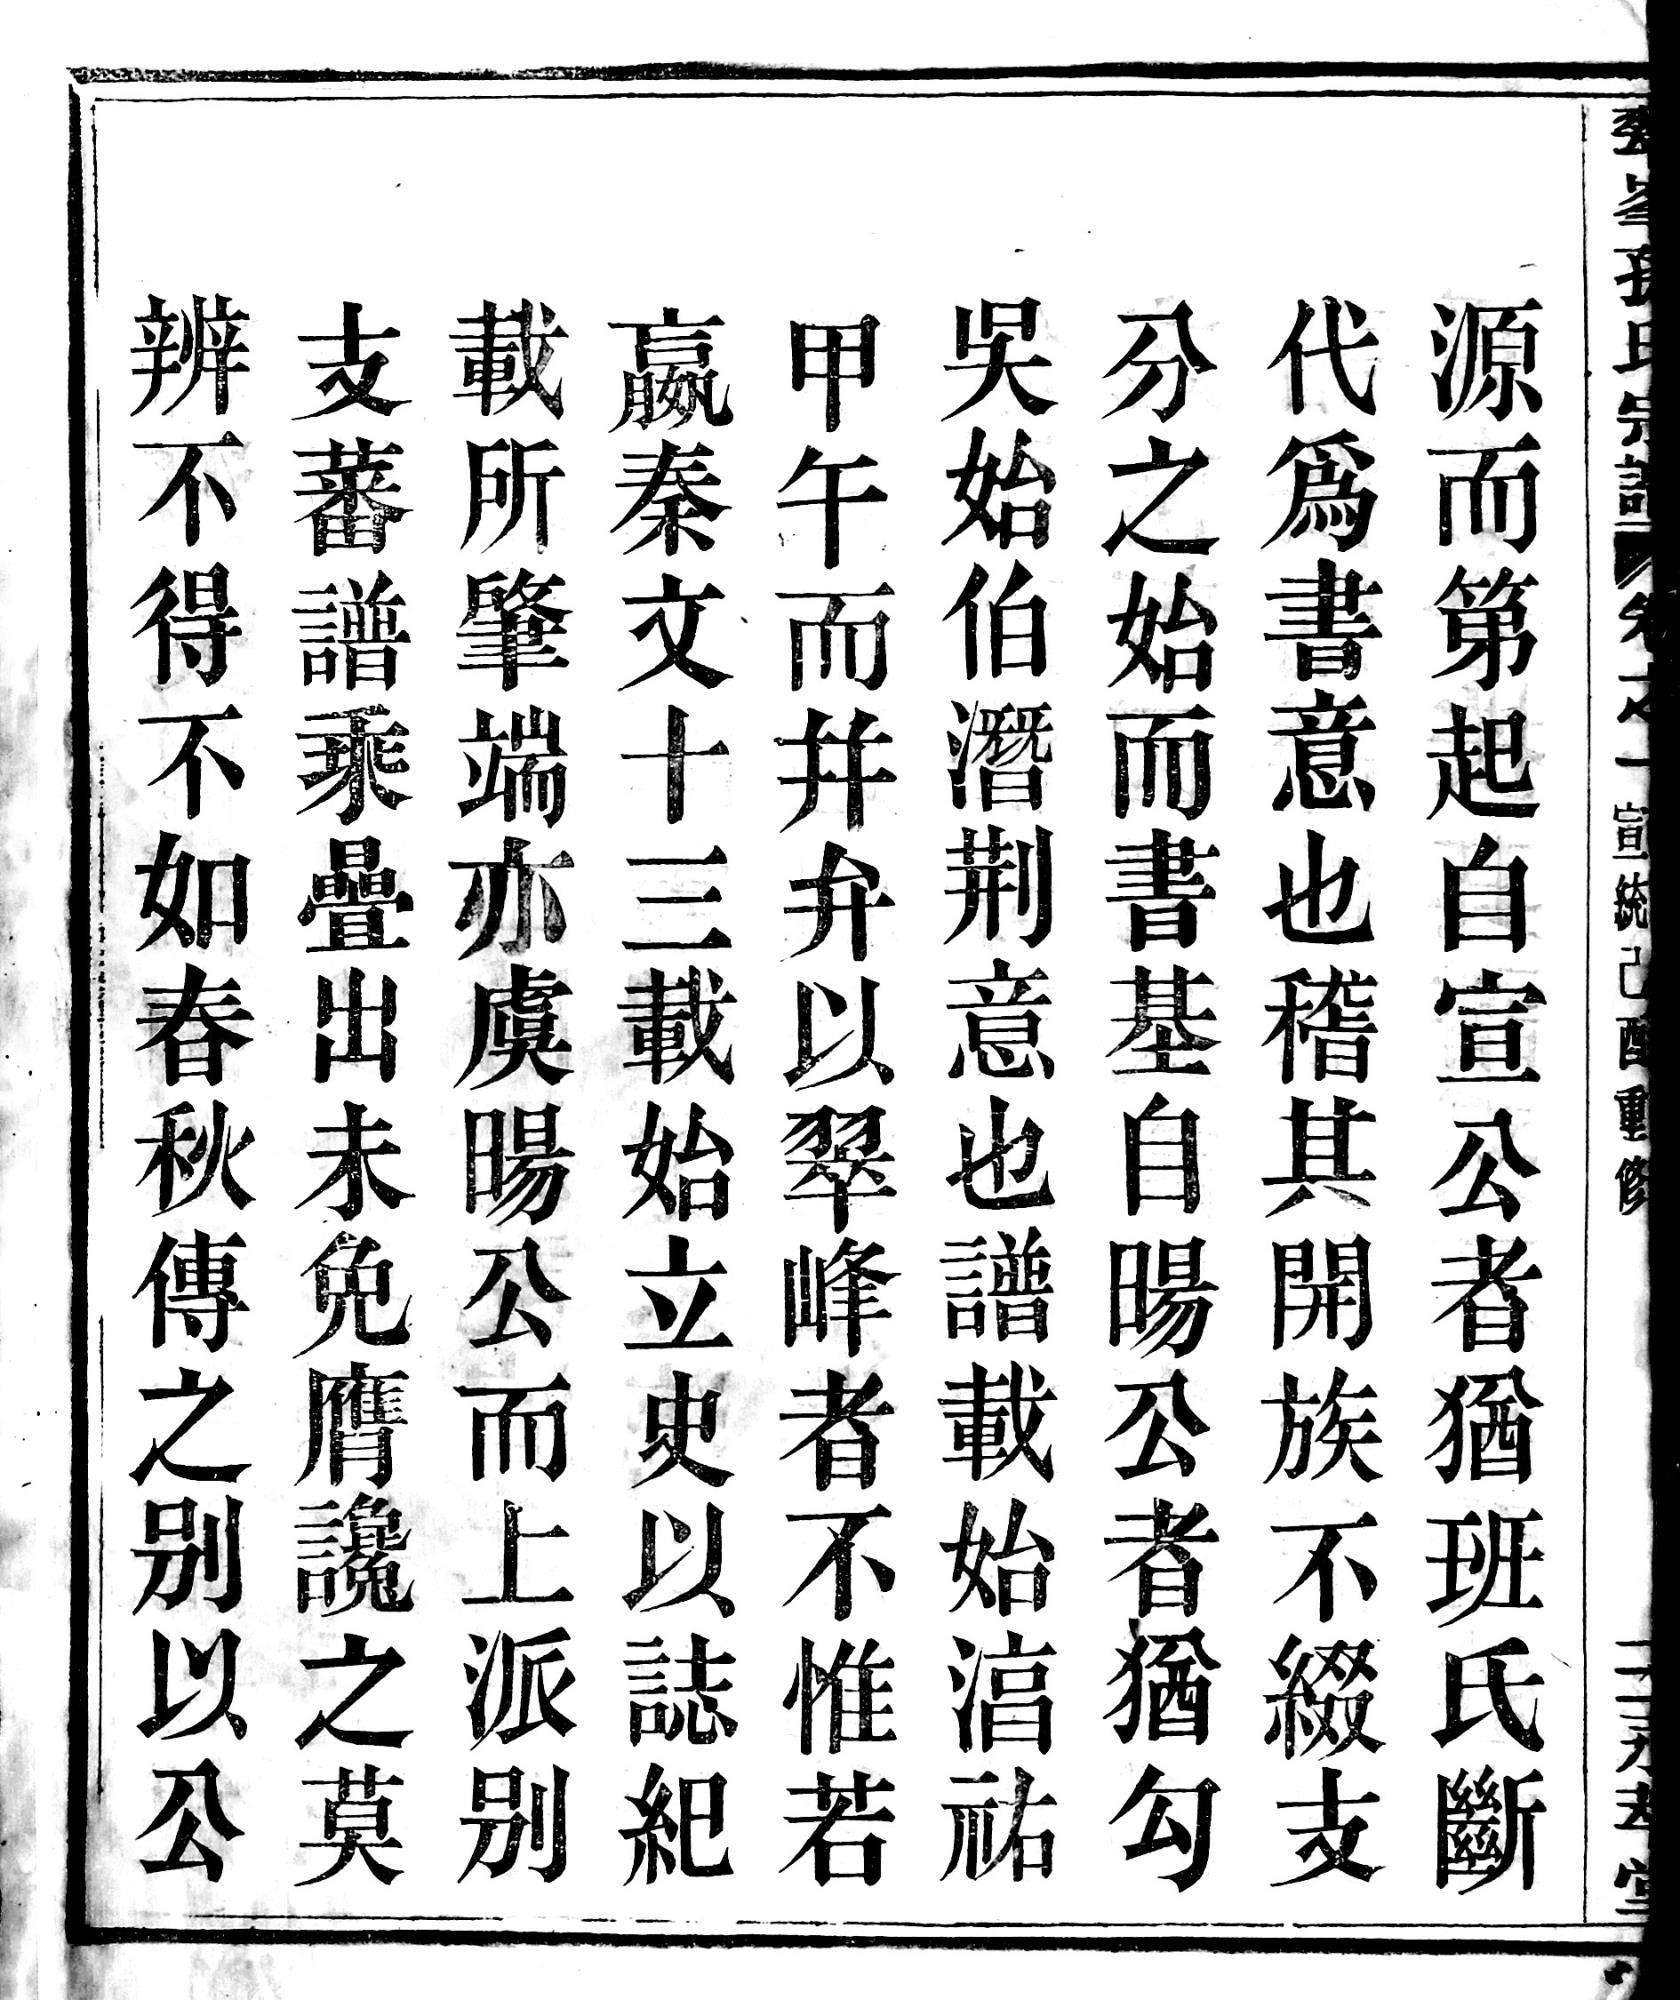 源而第起自宣公者猶班氏斷
代爲書意也稽其開族不綴支
分之始而書基自暘公者猶勾
吳始伯潛荆意也譜載始㴞祐
甲午而幷弁以翠峰者不惟若
嬴秦文十三載始立史以誌紀
載所肇端亦虞暘公而上派别
支蕃譜乘疊出未免膺讒之莫
辨不得不如春秋傳之别以公
孫氏宗譜 卷之一 宣統己酉重修